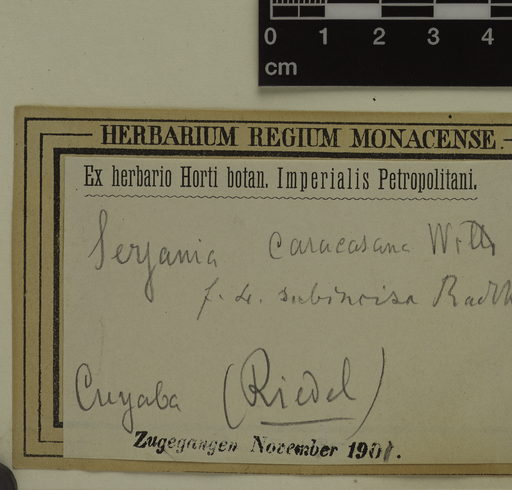 0 1 2 3 4
cm
HERBARIUM REGIUM MONACENSE.
Ex herbario Horti botan. Imperialis Petropolitani.
Serjania caracasana Willd
f. 4. subincisa Radlk
Cuyaba (Riedel)
Zugegangen November 1901.